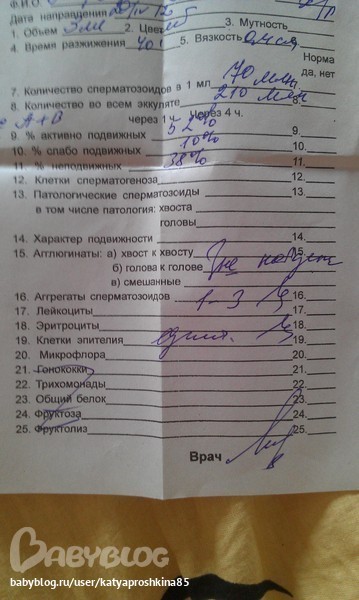 Ф.И.О.
Дата направления
1. Объем 3мл 2. Цвет 3. Мутность
4. Время разжижения 40' 5. Вязкость
Норма
да, нет
7. Количество сперматозоидов в 1 мл 70 млн.
8. Количество во всем эякуляте 210 млн 8.
A+B через 1 Через 4 ч.
9. % активно подвижных 52% 9.
10. % слабо подвижных 10% 10.
11. % неподвижных 38% 11.
12. Клетки сперматогенеза 12.
13. Патологические сперматозоиды 13.
в том числе патология: хвоста
головы
14. Характер подвижности 14.
15. Агглюгинаты: а) хвост к хвосту 15.
б) голова к голове не найдены
в) смешанные
16. Аггрегаты сперматозоидов 16.
17. Лейкоциты 1-3 17.
18. Эритроциты 18.
19. Клетки эпителия един. 19.
20. Микрофлора 20.
21. Гонококки 21.
22. Трихомонады 22.
23. Общий белок 23.
24. Фруктоза 24.
25. Фруктолиз 25.
Врач
BABYBLOG
babyblog.ru/user/katyaproshkina85